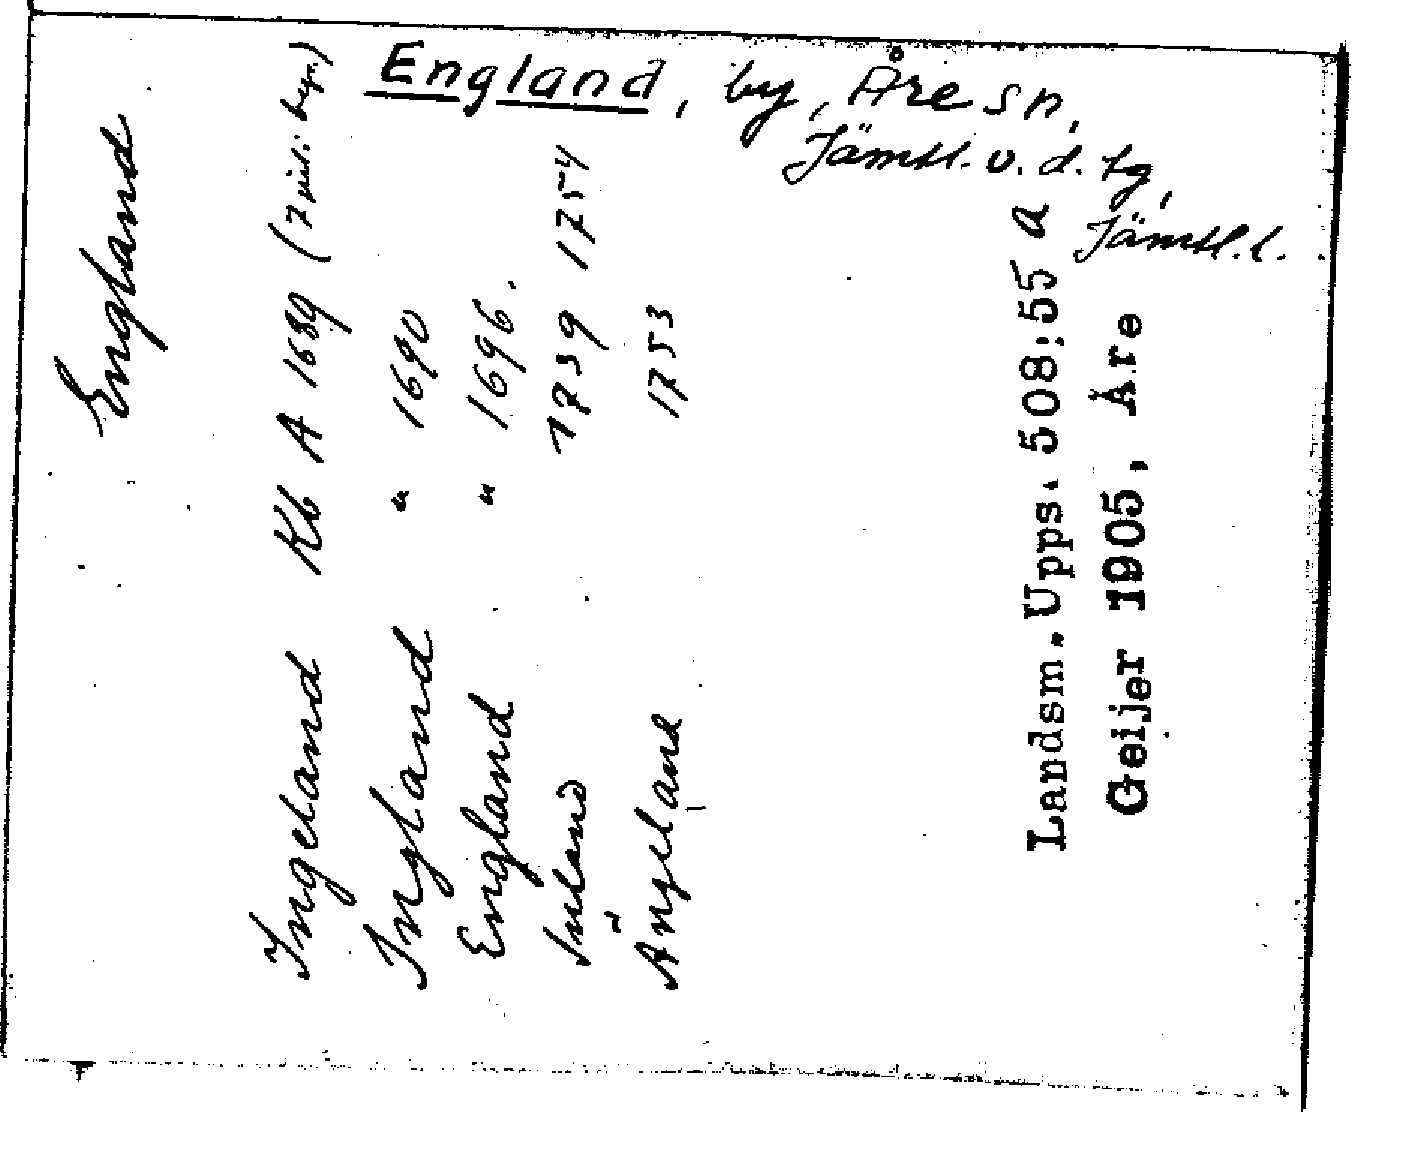 England, by, Åre sn,
Jämtl. v. d. tg,
Jämtl. l.
England
Ingeland Kb A 1689 (7
Ingland " 1690
England " 1696.
Inland 1739 1754
Ängeland 1753
Landsm. Upps. 508:55 a
Geijer 1905, Åre